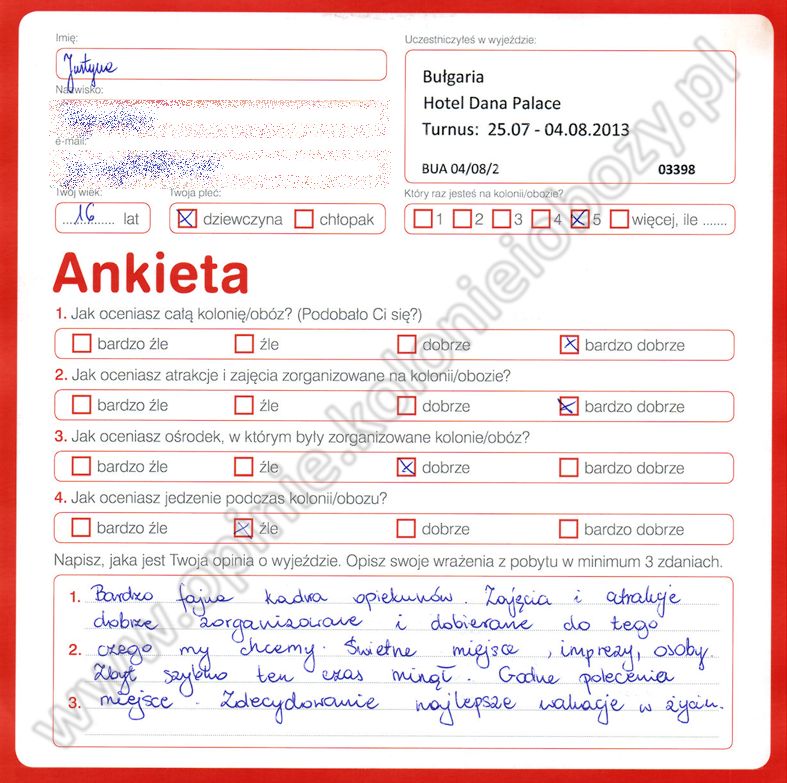 Imię:
Uczestniczyłeś w wyjeździe:
Justyna
Bułgaria
Hotel Dana Palace
Turnus: 25.07 - 04.08.2013
BUA 04/08/2
03398
Nazwisko:
e-mail:
Twój wiek:
Twoja płeć:
Który raz jesteś na kolonii/obozie?
16 lat
dziewczyna chłopak
1 2 3 4 5 więcej, ile .......
Ankieta
1. Jak oceniasz całą kolonię/obóz? (Podobało Ci się?)
bardzo źle źle dobrze bardzo dobrze
2. Jak oceniasz atrakcje i zajęcia zorganizowane na kolonii/obozie?
bardzo źle źle dobrze bardzo dobrze
3. Jak oceniasz ośrodek, w którym były zorganizowane kolonie/obóz?
bardzo źle źle dobrze bardzo dobrze
4. Jak oceniasz jedzenie podczas kolonii/obozu?
bardzo źle źle dobrze bardzo dobrze
Napisz, jaka jest Twoja opinia o wyjeździe. Opisz swoje wrażenia z pobytu w minimum 3 zdaniach.
1. Bardzo fajna kadra opiekunów. Zajęcia i atrakcje
dobrze zorganizowane i dobierane do tego
2. czego my chcemy. Świetne miejsce, imprezy, osoby.
Zbyt szybko ten czas minął. Godne polecenia
3. miejsce. Zdecydowanie najlepsze wakacje w życiu.
www.opinie.kolonieiobozy.pl